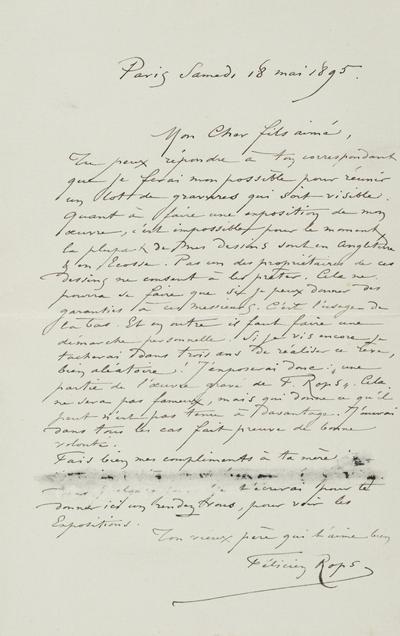 Paris Samedi 18 mai 1895.
Mon Cher fils aimé,
Tu peux répondre à ton correspondant
que je ferai mon possible pour réunir
un lot de gravures qui soit visible.
Quant à faire une exposition de mon
œuvre, c'est impossible pour le moment
la plupart de mes Dessins sont en Angleterre
& en Ecosse. Pas un des propriétaires de ces
dessins ne consent à les prêter. Cela ne
pourra se faire que si je peux donner des
garanties à ces messieurs. C'est l'usage de
là bas. Et en outre il faut faire une
démarche personnelle. Si je vis encore je
tacherai dans trois ans de réaliser ce rêve,
bien aléatoire! J'exposerai donc: une
partie de l'œuvre gravé de F. Rops. Cela
ne sera pas fameux, mais qui donne ce qu'il
peut n'est pas tenu à davantage. J'aurai
dans tous les cas fait preuve de bonne
volonté.
Fais bien mes compliments à ta mère
je t'écrirai pour te
donner ici un rendez-vous, pour voir les
Expositions.
Ton vieux père qui t'aime bien
Félicien Rops